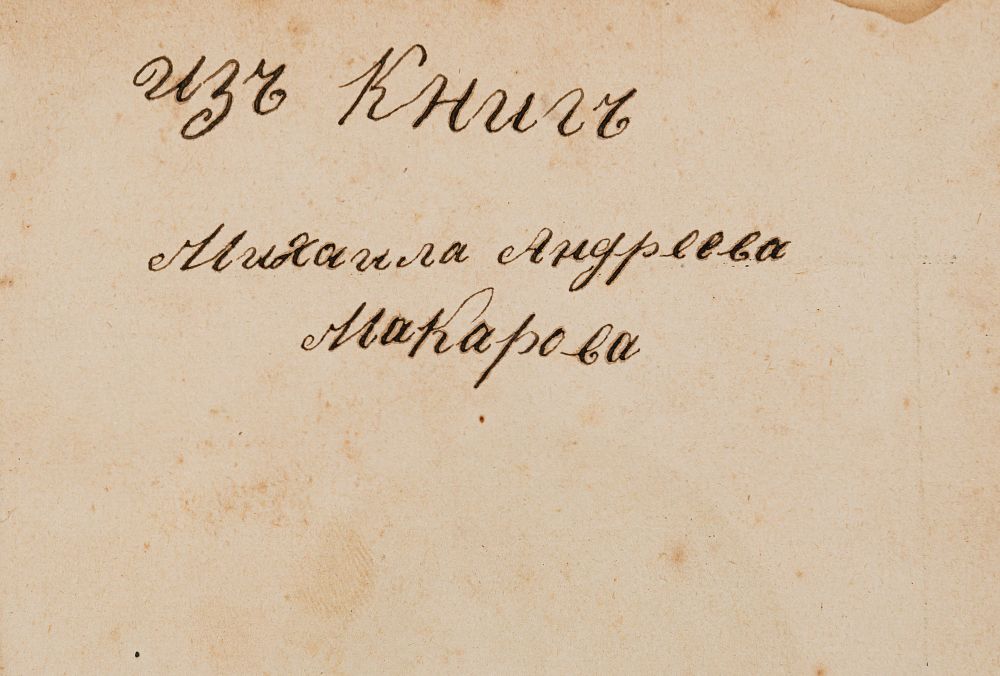 изъ Книгъ
Михаила Андреева
Макарова